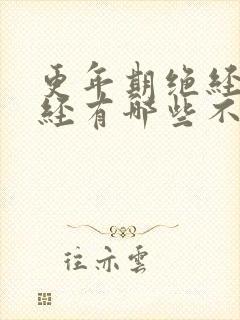 更年期绝经
经有哪些不
往亦雲